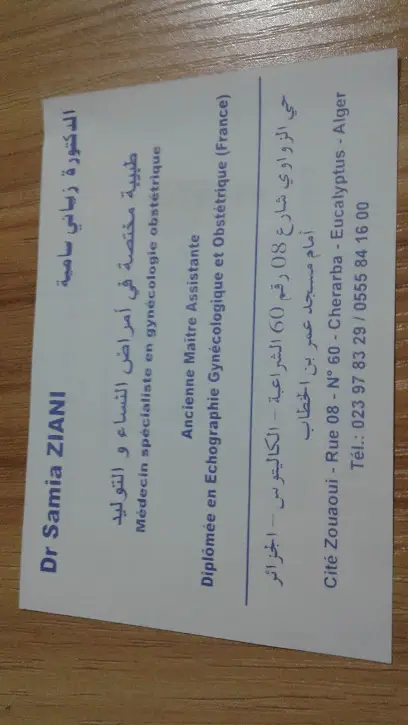 Dr Samia ZIANI
الدكتورة زياني سامية
طبيبة مختصة في أمراض النساء و التوليد
Médecin spécialiste en gynécologie obstétrique
Ancienne Maître Assistante
Diplómée en Echographie Gynécologique et Obstétrique (France)
حي الزواوي شارع 08 رقم 60 الشراعبة - الكاليتوس - الجزائر
أمام مسجد عمر بن الخطاب
Cité Zouaoui - Rue 08 - N° 60 - Cherarba - Eucalyptus - Alger
Tél.: 023 97 83 29 / 0555 84 16 00